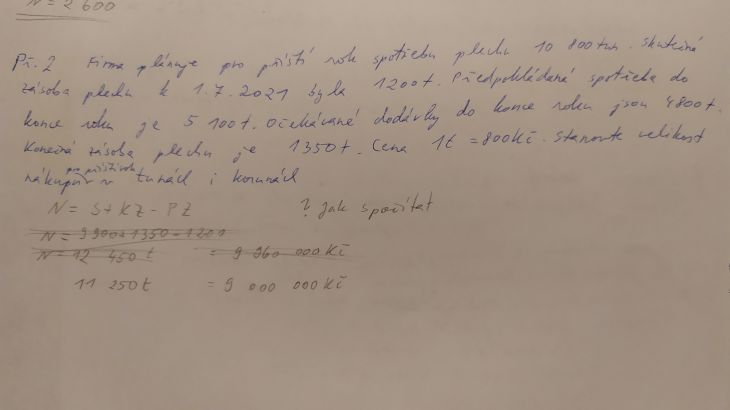 N = 2 600
Př. 2 Firma plánuje pro příští rok spotřebu plechu 10 800 tun. Skutečná
zásoba plechu k 1.7.2021 byla 1200t. Předpokládaná spotřeba do
konce roku je 5 100t. Očekávané dodávky do konce roku jsou 4800t.
Konečná zásoba plechu je 1350t. Cena 1t = 800Kč. Stanovte velikost
pro příští rok
nákupu v tunách i korunách
N = S + KZ - PZ ? jak spočítat
N = 9 900 + 1350 - 1200
N = 12 450 t = 9 960 000 Kč
11 250t = 9 000 000 Kč